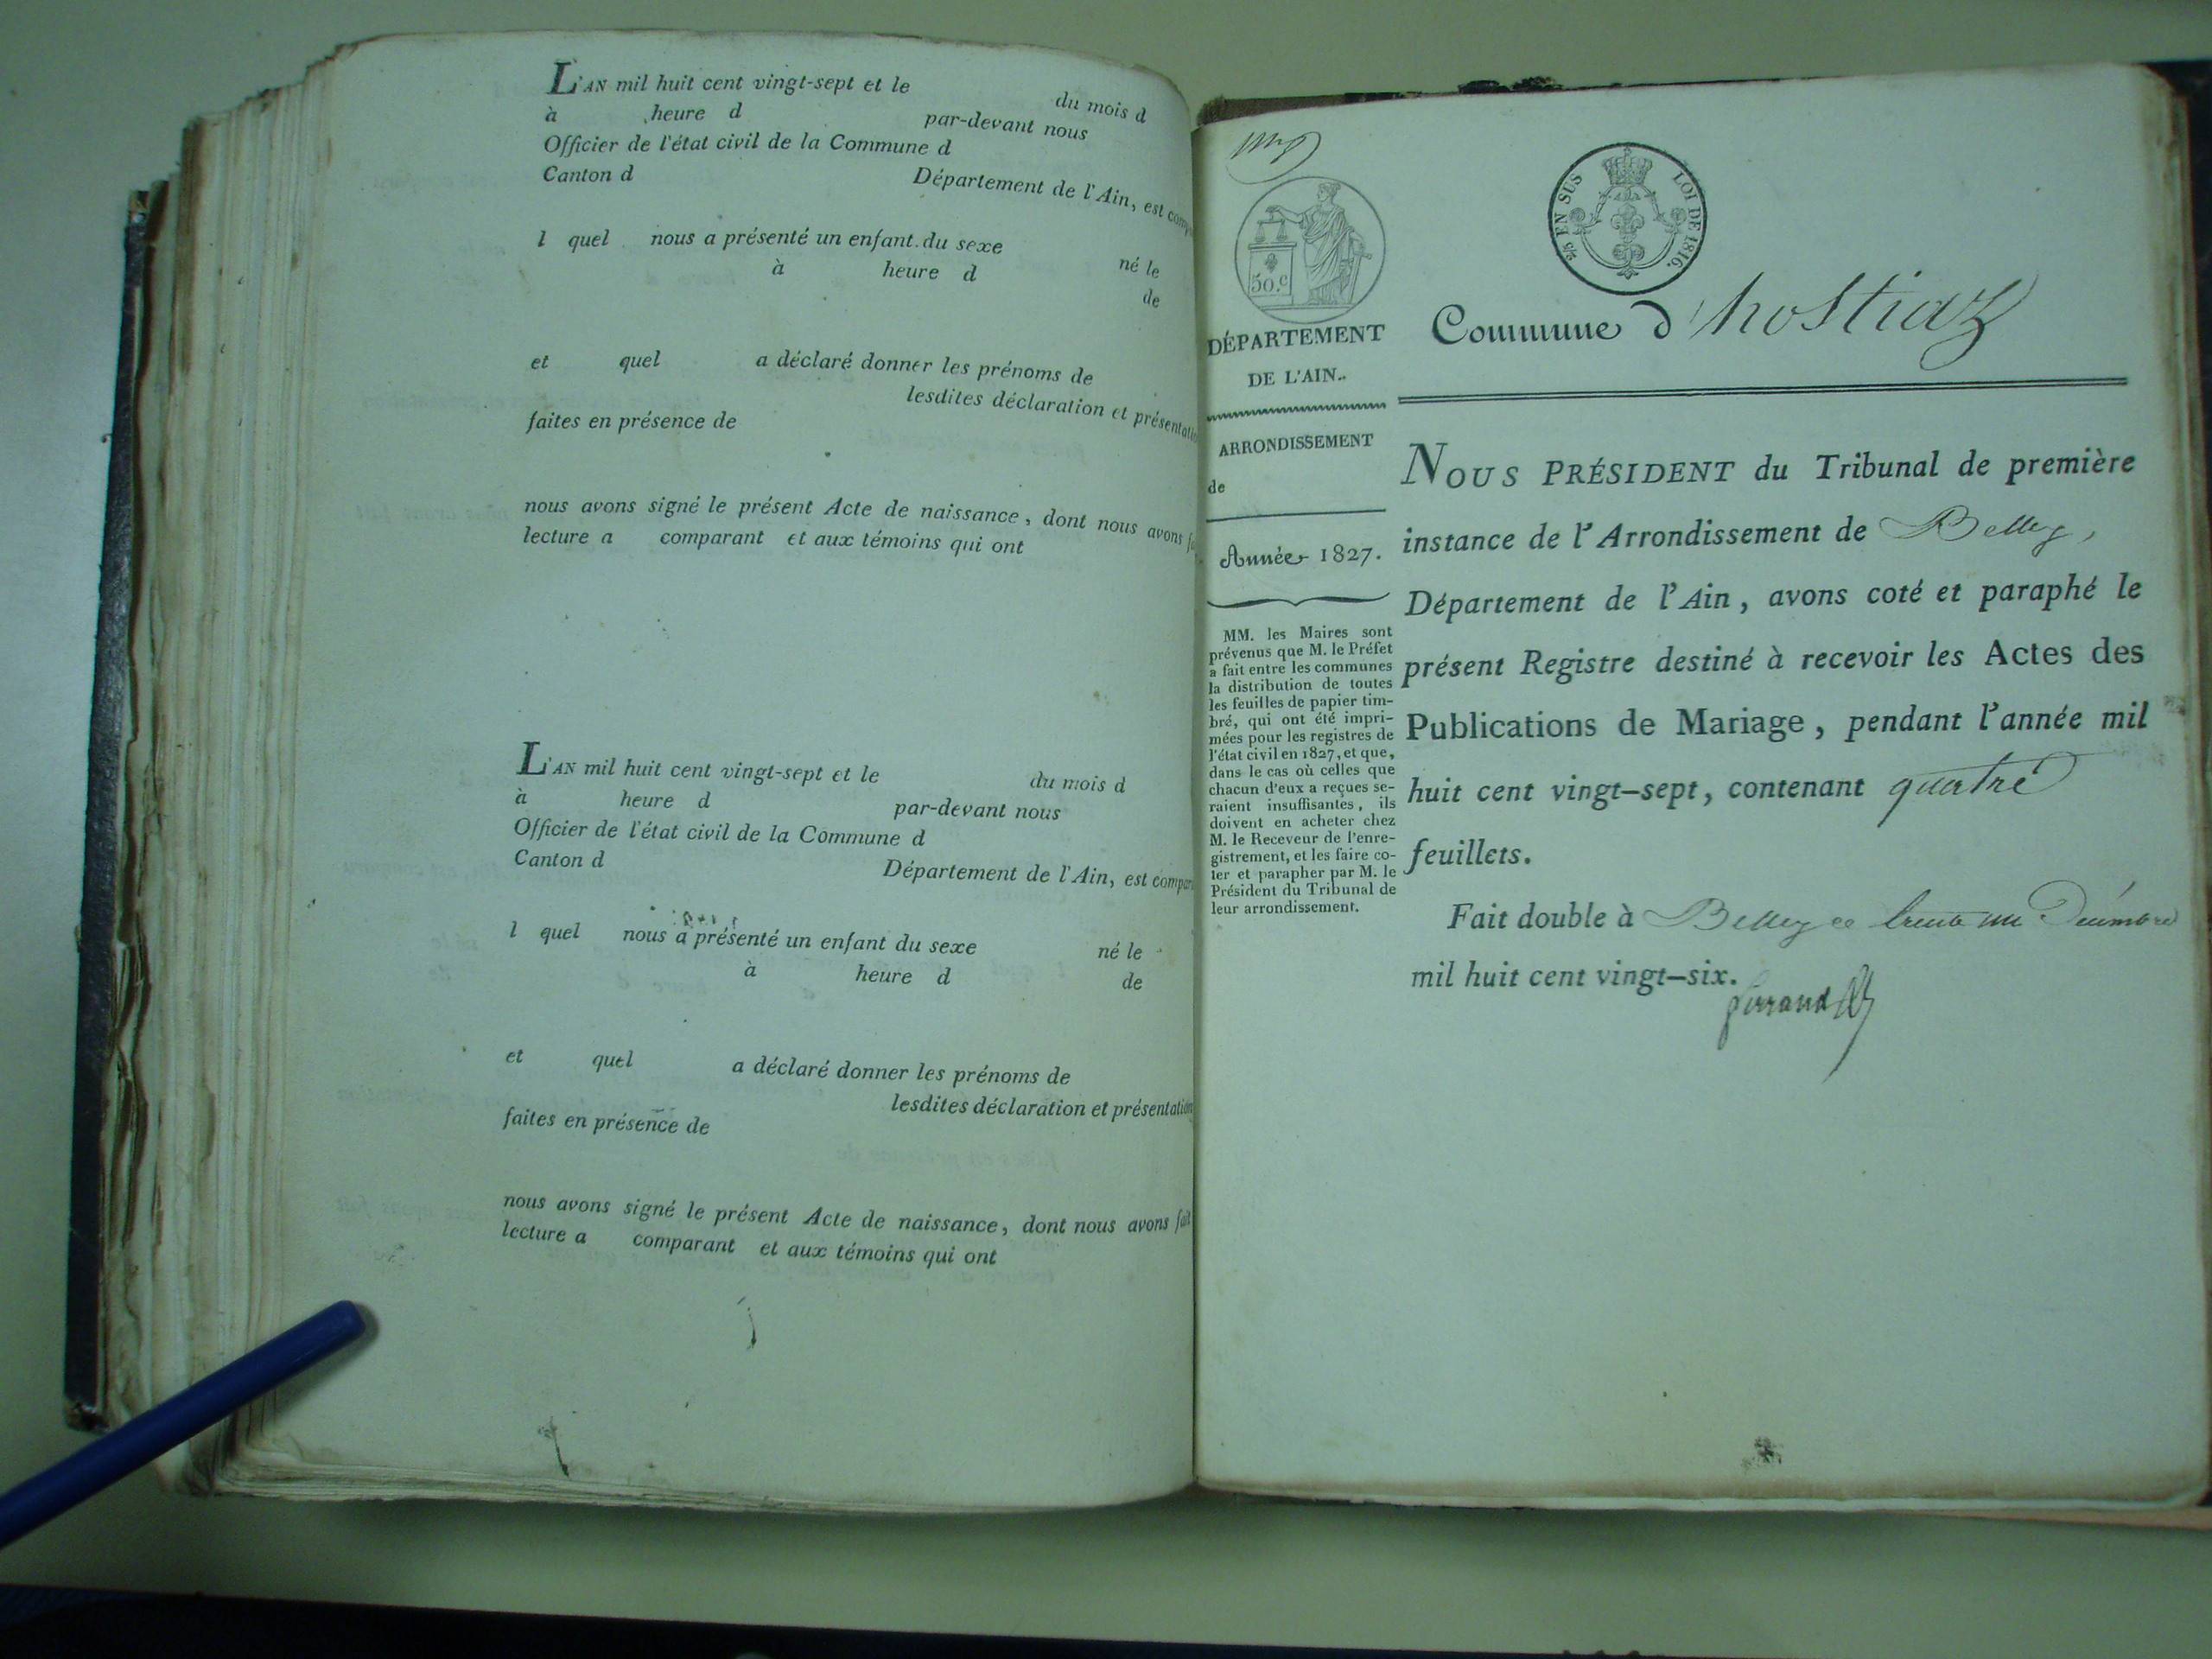 L'AN mil huit cent vingt-sept et le du mois d
à heure d par-devant nous
Officier de l'état civil de la Commune d
Canton d Département de l'Ain, est comp
l quel nous a présenté un enfant du sexe né le
à heure d de
et quel a déclaré donner les prénoms de
lesdites déclaration et présentati
faites en présence de
nous avons signé le présent Acte de naissance, dont nous avons fa
lecture a comparant et aux témoins qui ont
L'AN mil huit cent vingt-sept et le du mois d
à heure d par-devant nous
Officier de l'état civil de la Commune d
Canton d Département de l'Ain, est compar
l quel nous a présenté un enfant du sexe né le
à heure d de
et quel a déclaré donner les prénoms de
lesdites déclaration et présentation
faites en présence de
nous avons signé le présent Acte de naissance, dont nous avons fait
lecture a comparant et aux témoins qui ont
50.c
DÉPARTEMENT
DE L'AIN.
ARRONDISSEMENT
de
Année 1827.
MM. les Maires sont
prévenus que M. le Préfet
a fait entre les communes
la distribution de toutes
les feuilles de papier tim-
bré, qui ont été impri-
mées pour les registres de
l'état civil en 1827, et que,
dans le cas où celles que
chacun d'eux a reçues se-
raient insuffisantes, ils
doivent en acheter chez
M. le Receveur de l'enre-
gistrement, et les faire co-
ter et parapher par M. le
Président du Tribunal de
leur arrondissement.
EN SUS LOI DE 1816.
Commune d'hostiaz
NOUS PRÉSIDENT du Tribunal de première
instance de l'Arrondissement de Belley,
Département de l'Ain, avons coté et paraphé le
présent Registre destiné à recevoir les Actes des
Publications de Mariage, pendant l'année mil
huit cent vingt-sept, contenant quatre
feuillets.
Fait double à Belley ce trente un Décembre
mil huit cent vingt-six.